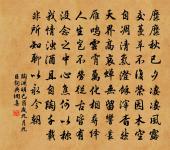 靡靡秋已夕淒淒風露
交蔓草不復榮園木空
自凋清氣澄餘滓杳然
天界高哀蟬無留響叢
雁鳴雲霄萬化相尋繹
人生豈不勞從古皆有
沒念之中心焦何以稱
我情濁酒且自陶千載
非所知聊以永今朝
陶淵明己酉歲九月九
日